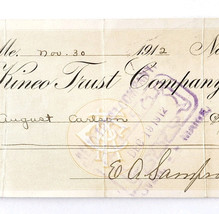 Me. Nov. 30 1912 No
Kineo Trust Company
August Carlson
E A Samps